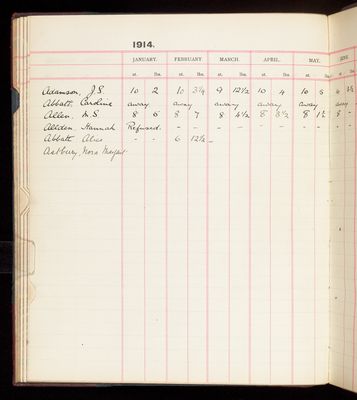 1914.
JANUARY. FEBRUARY MARCH. APRIL. MAY. JUNE
st. lbs. st. lbs. st. lbs. st. lbs. st. lbs. st. lbs.
Adamson, J.S. 10 2 10 3¼ 9 12½ 10 4 10 5
Abbott, Caroline away away away away away away
Allen, M.S. 8 6 8 7 8 4½ 8 3½ 8 1½ 8 -
Allden Hannah Refused. - - - - - - - - - -
Abbott Alice - - 6 12½ -
Astbury, Nora Margaret